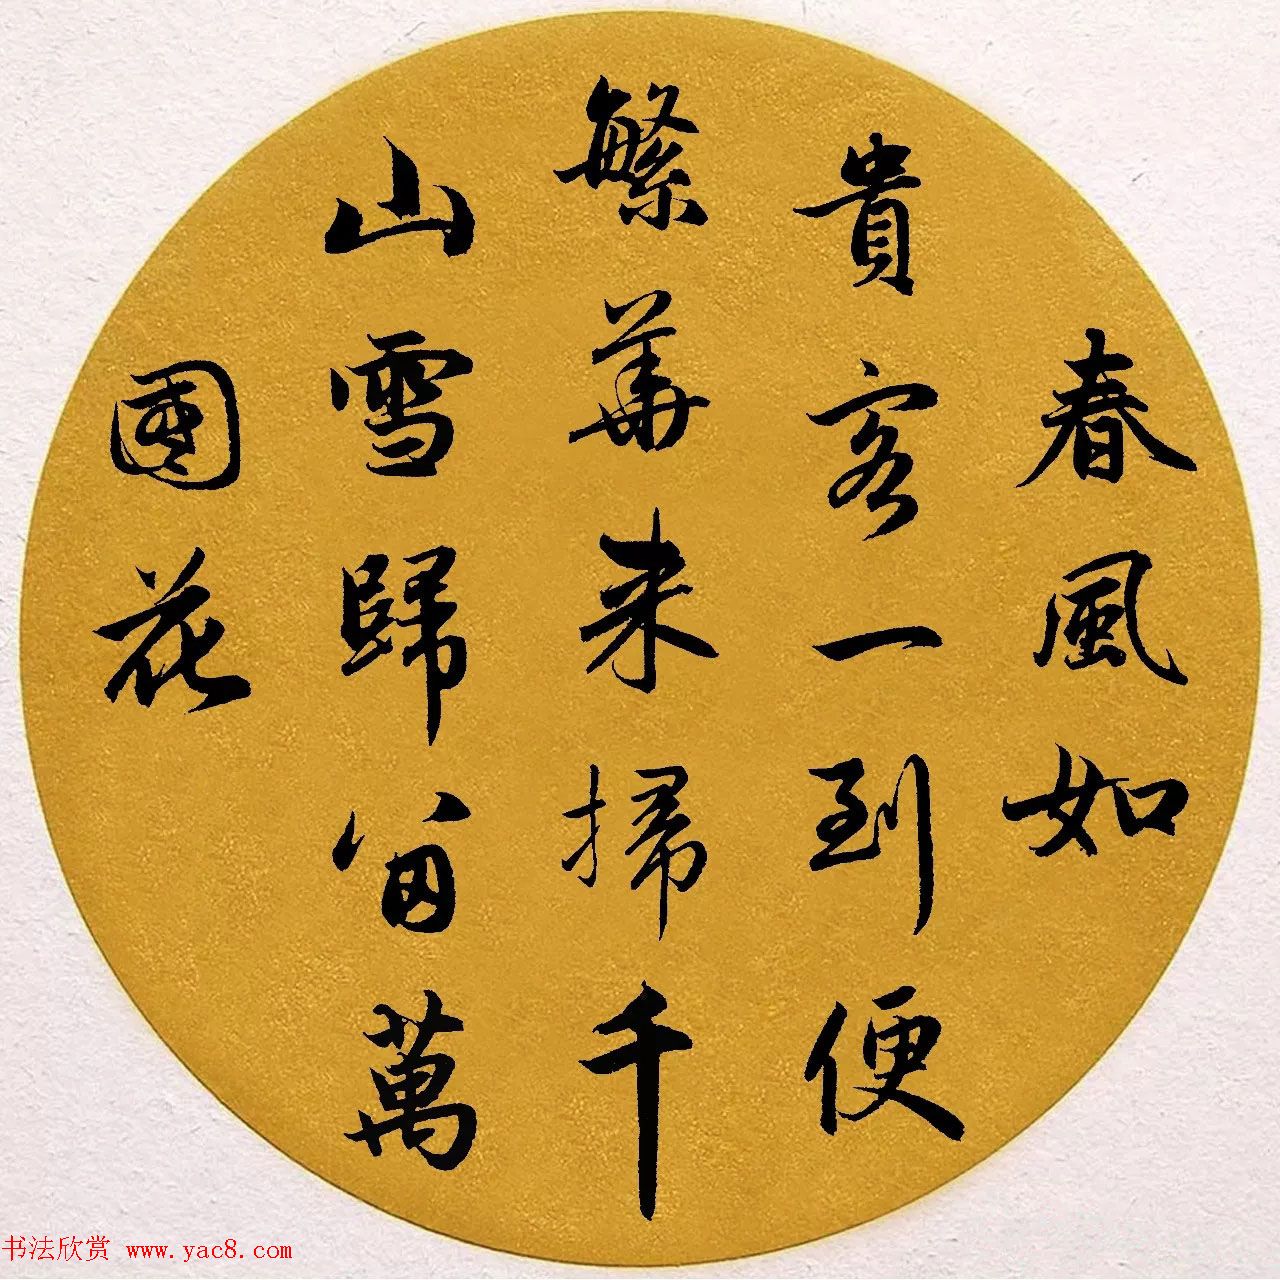 春風如
貴客一到便
繁華来掃千
山雪歸留萬
國花
书法欣赏 www.yac8.com